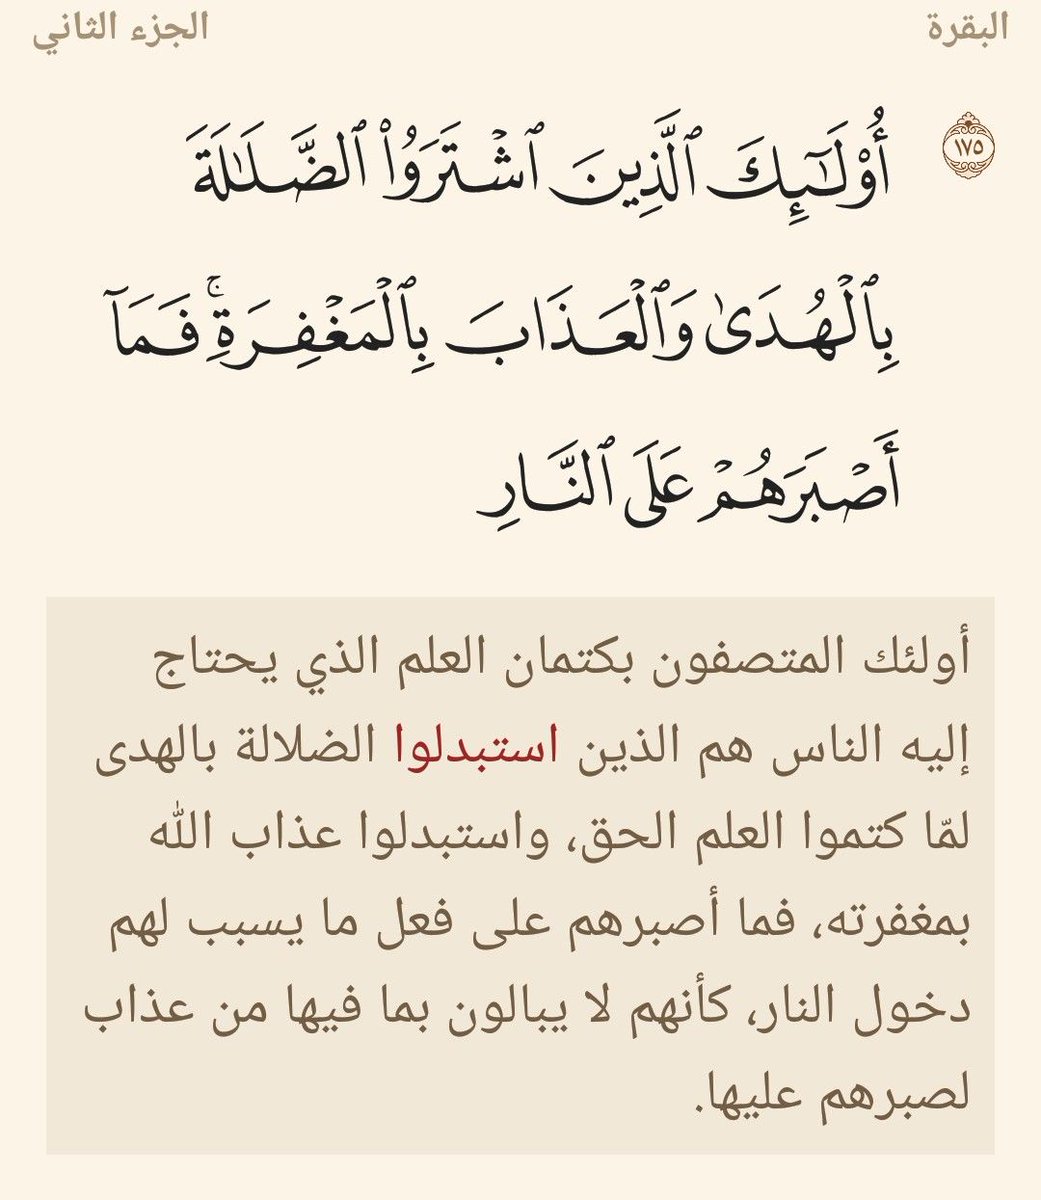 البقرة الجزء الثاني
١٧٥ أُوْلَـٰٓئِكَ ٱلَّذِينَ ٱشْتَرَوُاْ ٱلضَّلَـٰلَةَ
بِٱلْهُدَىٰ وَٱلْعَذَابَ بِٱلْمَغْفِرَةِۚ فَمَآ
أَصْبَرَهُمْ عَلَى ٱلنَّارِ
أولئك المتصفون بكتمان العلم الذي يحتاج
إليه الناس هم الذين استبدلوا الضلالة بالهدى
لمّا كتموا العلم الحق، واستبدلوا عذاب الله
بمغفرته، فما أصبرهم على فعل ما يسبب لهم
دخول النار، كأنهم لا يبالون بما فيها من عذاب
لصبرهم عليها.